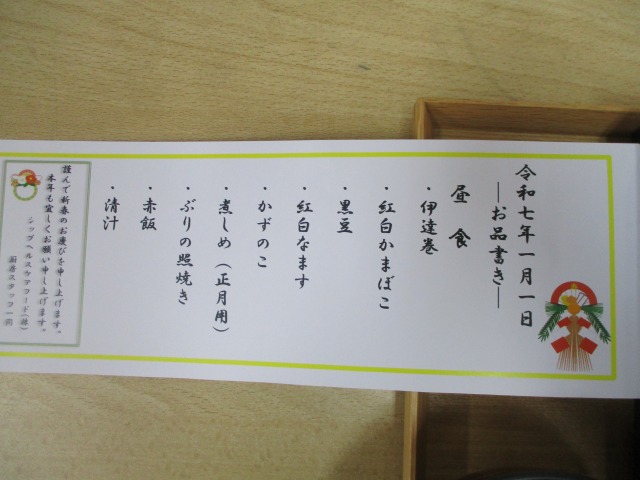 令和七年一月一日
―お品書き―
昼食
・伊達巻
・紅白かまぼこ
・黒豆
・紅白なます
・かずのこ
・煮しめ(正月用)
・ぶりの照焼き
・赤飯
・清汁
謹んで新春のお慶びを申し上げます。
本年も宜しくお願い申し上げます。
シップヘルスケアフード(株)
厨房スタッフ一同